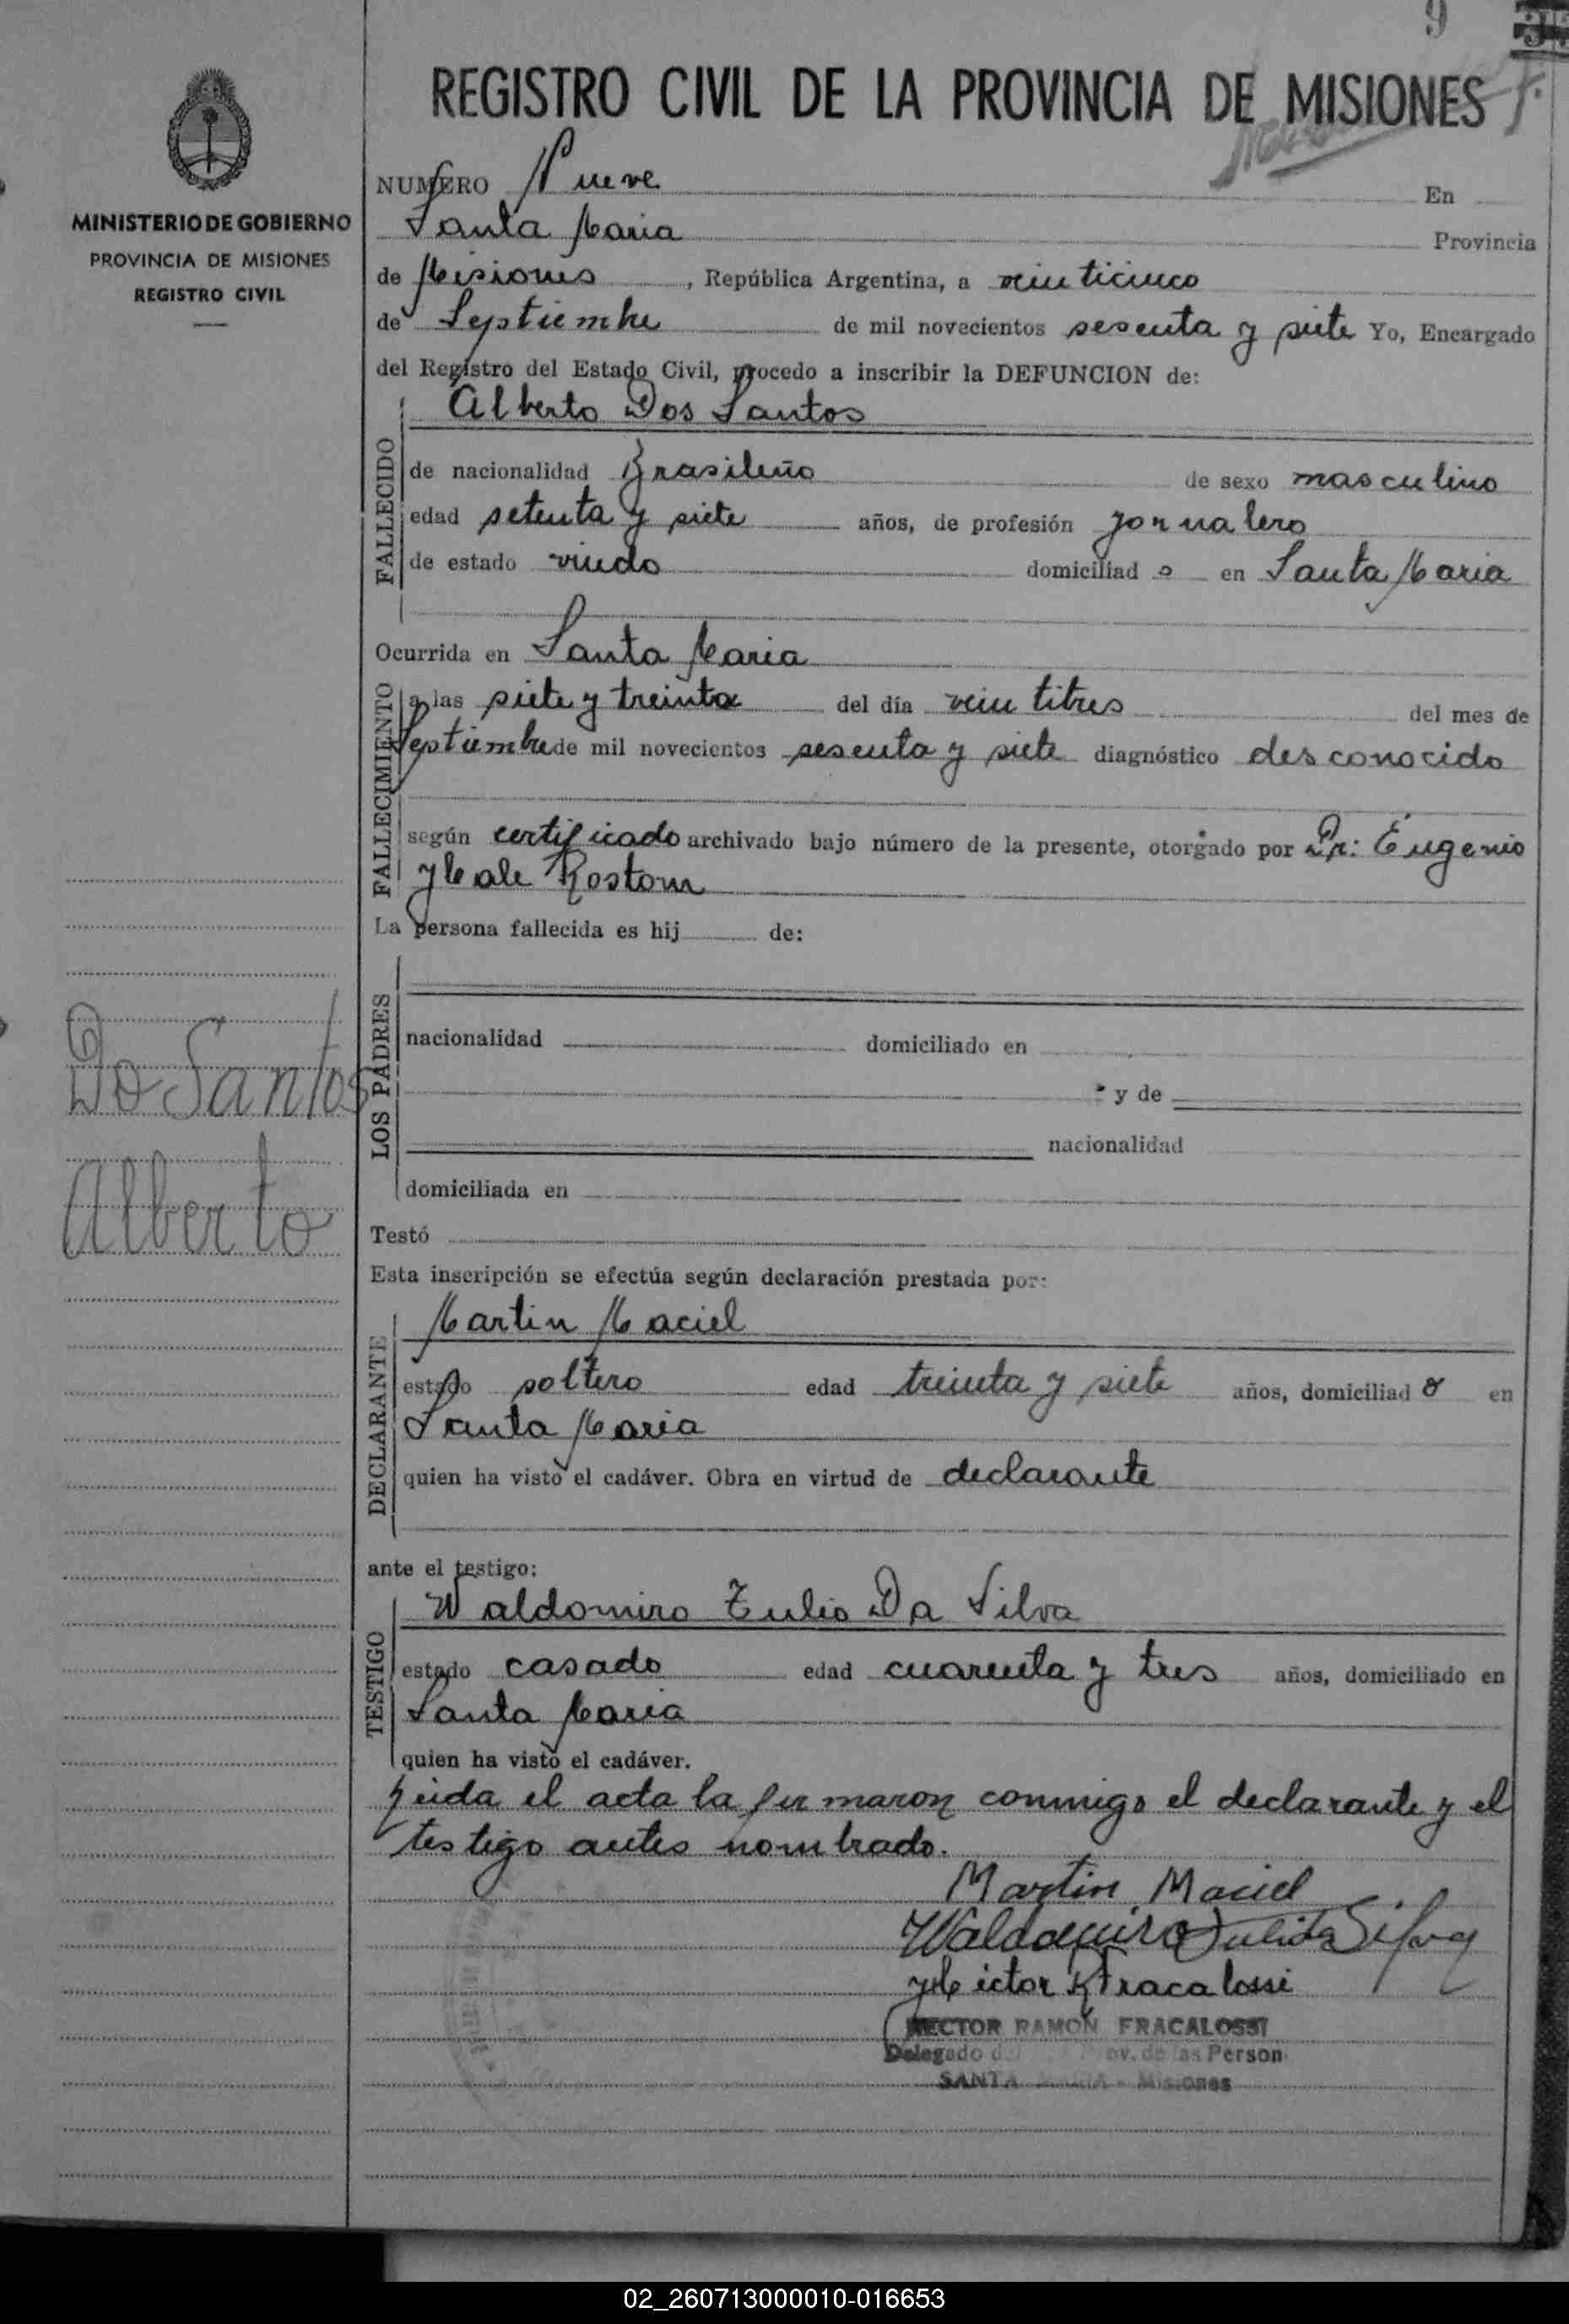 9
REGISTRO CIVIL DE LA PROVINCIA DE MISIONES
MINISTERIO DE GOBIERNO
PROVINCIA DE MISIONES
REGISTRO CIVIL
NUMERO Nueve En
Santa Maria Provincia
de Misiones, República Argentina, a veinticinco
de Septiembre de mil novecientos sesenta y siete Yo, Encargado
del Registro del Estado Civil, procedo a inscribir la DEFUNCION de:
FALLECIDO
Alberto Dos Santos
de nacionalidad Brasileño de sexo masculino
edad setenta y siete años, de profesión jornalero
de estado viudo domiciliad o en Santa Maria
Ocurrida en Santa Maria
FALLECIMIENTO
a las siete y treinta del día veintitres del mes de
Septiembre de mil novecientos sesenta y siete diagnóstico desconocido
según certificado archivado bajo número de la presente, otorgado por Dr: Eugenio
Rostom
La persona fallecida es hij de:
LOS PADRES
nacionalidad domiciliado en
y de
nacionalidad
domiciliada en
Do Santos
Alberto
Testó
Esta inscripción se efectúa según declaración prestada por:
DECLARANTE
Martin Maciel
estado soltero edad treinta y siete años, domiciliad o en
Santa Maria
quien ha visto el cadáver. Obra en virtud de declarante
ante el testigo:
TESTIGO
Waldomiro Tulio Da Silva
estado casado edad cuarenta y tres años, domiciliado en
Santa Maria
quien ha visto el cadáver.
Leida el acta la firmaron conmigo el declarante y el
testigo antes nombrado.
Martin Maciel
Waldomiro Tulio da Silva
Hector R Fracalossi
HECTOR RAMON FRACALOSSI
Delegado del Prov. de las Person
SANTA MARIA - Misiones
02_260713000010-016653